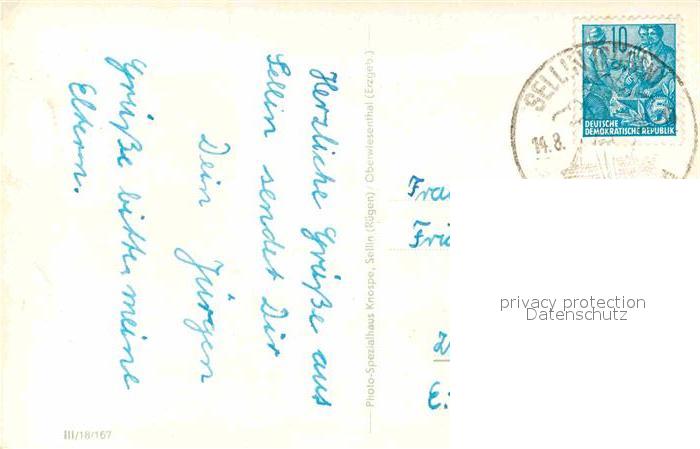 Herzliche Grüße aus
Sellin sendet Dir
Dein Jürgen
Grüße bitte meine
Eltern.
III/18/167
Photo-Spezialhaus Knospe, Sellin (Rügen) / Oberwiesenthal (Erzgeb.)
10
5
DEUTSCHE
DEMOKRATISCHE REPUBLIK
SELLIN
14.8.
privacy protection
Datenschutz